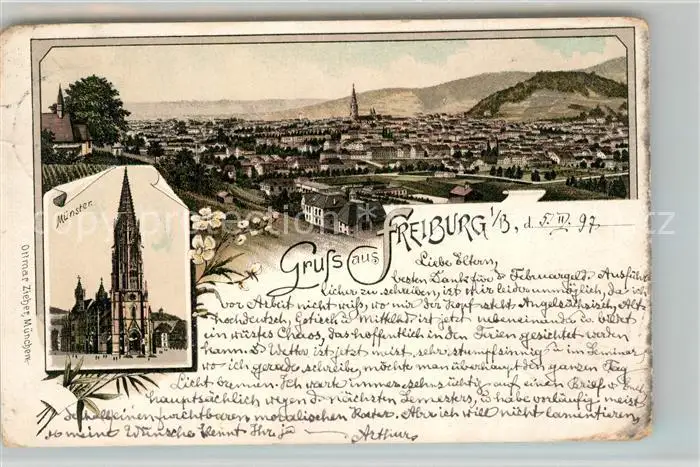 Münster.
Ottmar Zieher, München.
Gruss aus FREIBURG i/B, d. 5. III. 97
Liebe Eltern,
besten Dank für d. Februargeld. Ausführ
licher zu schreiben, ist mir leider unmöglich, da ich
vor Arbeit nicht weiß, wo mir der Kopf steht. Angelsächsisch, Alt-
hochdeutsch, Gotisch u. Mittelhd ist jetzt nebeneinander u. bildet
ein wüstes Chaos, das hoffentlich in den Ferien gesichtet werden
kann. D. Wetter ist jetzt meist sehr stumpfsinnig u. im Seminar
wo ich gerade schreibe, möchte man überhaupt den ganzen Tag
Licht brennen. Ich warte immer sehnsüchtig auf einen Brief v. Euch
hauptsächlich wegen d. nächsten Semesters, u. habe vorläufig meist
deshalb einen furchtbaren moralischen Kater. Aber ich will nicht lamentieren,
meine Wünsche kennt Ihr ja
Arthur